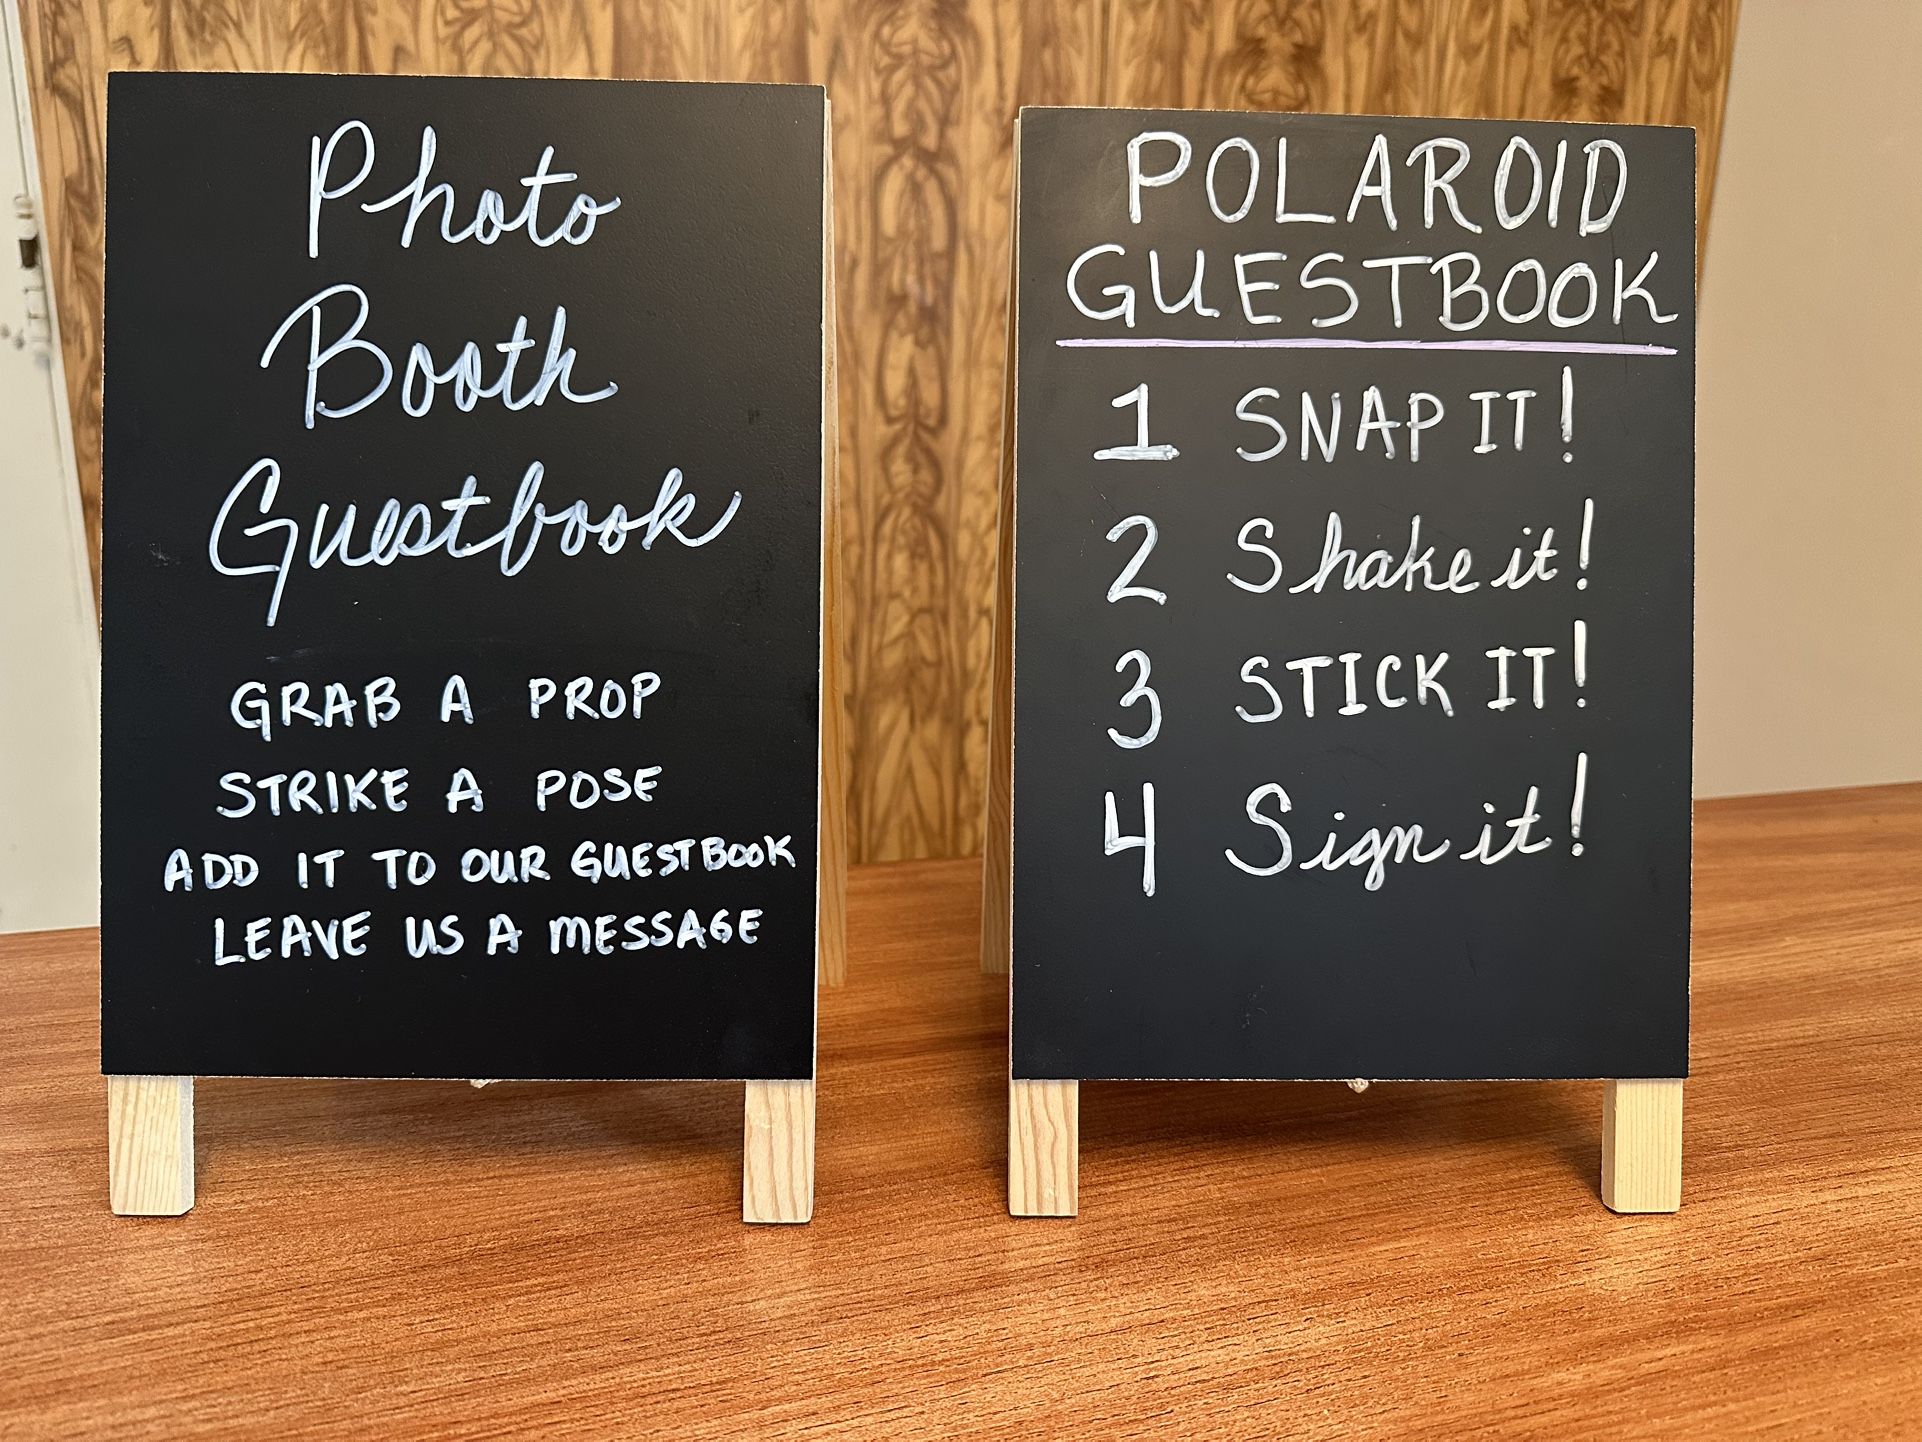 Photo
Booth
Guestbook
GRAB A PROP
STRIKE A POSE
ADD IT TO OUR GUESTBOOK
LEAVE US A MESSAGE
POLAROID
GUESTBOOK
1 SNAP IT!
2 Shake it!
3 STICK IT!
4 Sign it!